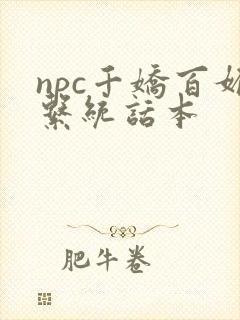 npc千嬌百媚
繫統話本
肥牛卷